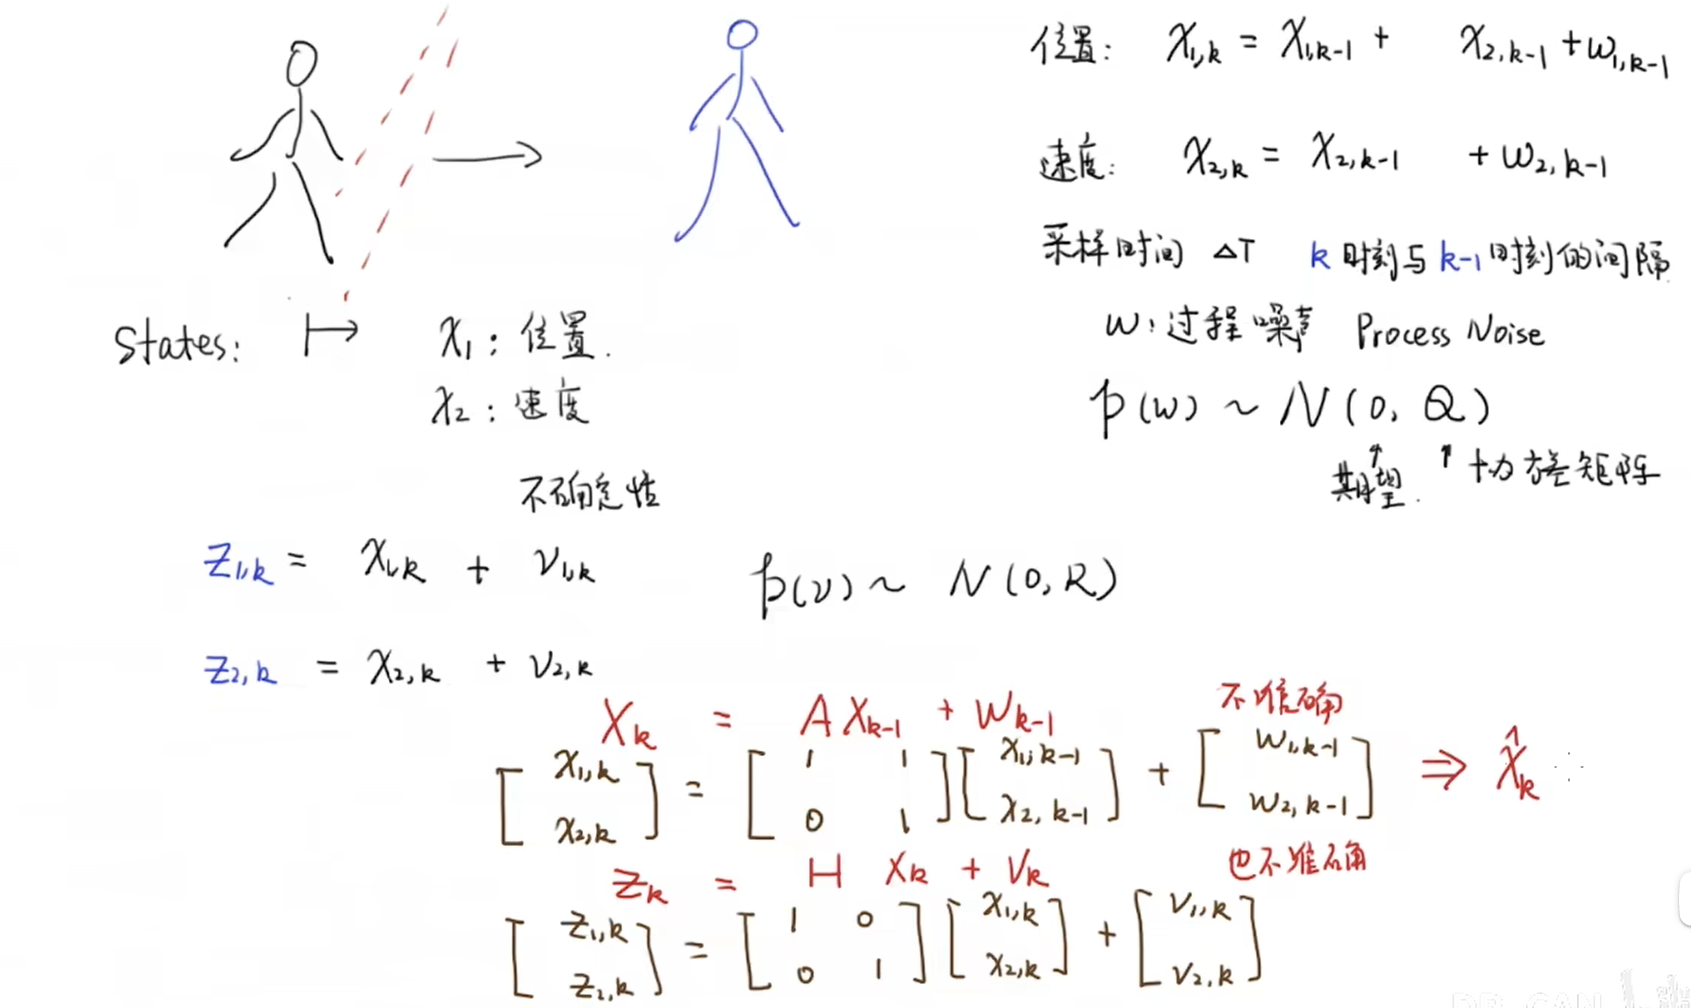 位置: X₁,k = X₁,k-1 + X₂,k-1 + w₁,k-1
速度: X₂,k = X₂,k-1 + w₂,k-1
采样时间 ΔT k时刻与k-1时刻的间隔
w: 过程噪声 Process Noise
p(w) ~ N(0, Q)
期望. 协方差矩阵
States: X₁: 位置.
X₂: 速度
不确定性
Z₁,k = X₁,k + V₁,k
p(v) ~ N(0, R)
Z₂,k = X₂,k + V₂,k
Xk = A Xk-1 + Wk-1 不准确
[X₁,k X₂,k] = [1 1 0 1] [X₁,k-1 X₂,k-1] + [W₁,k-1 W₂,k-1] ⇒ X̂k
Zk = H Xk + Vk 也不准确
[Z₁,k Z₂,k] = [1 0 0 1] [X₁,k X₂,k] + [V₁,k V₂,k]
DR_CAN